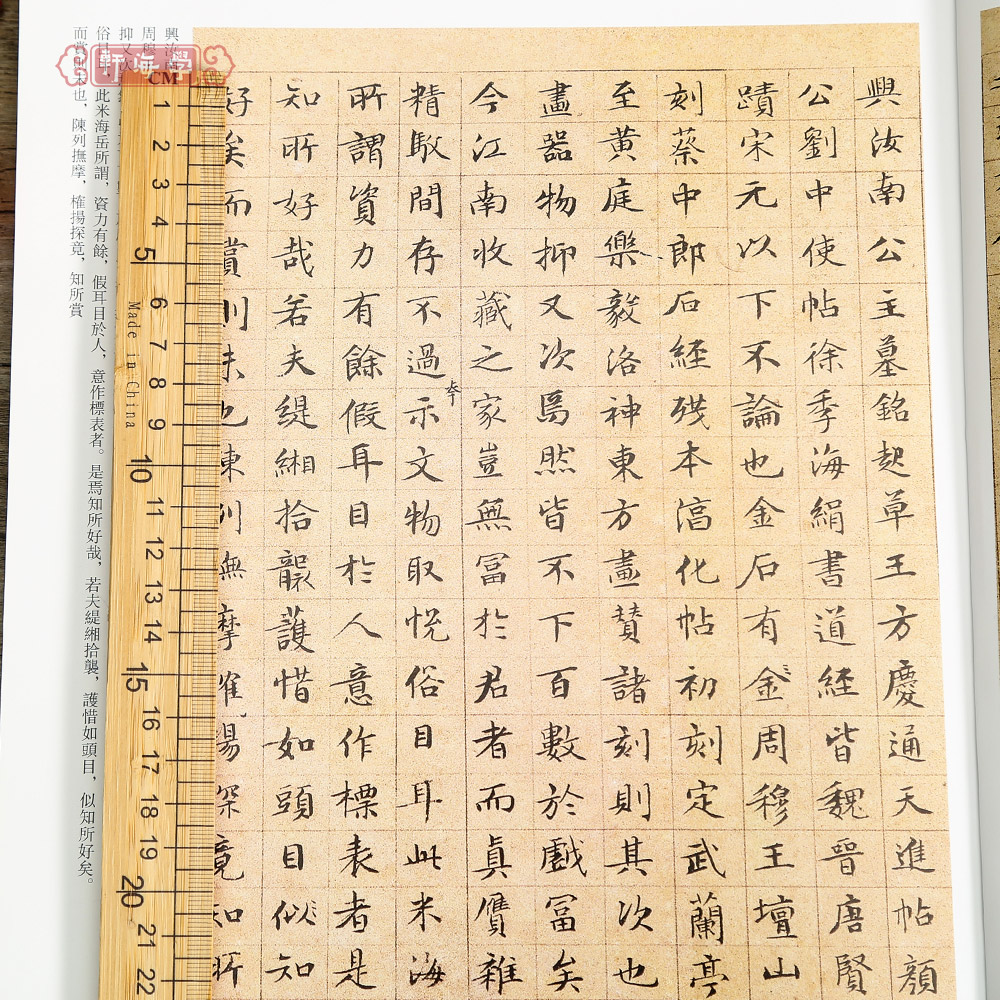 興汝南公主墓銘起草王方慶通天進帖顏
公劉中使帖徐季海絹書道經皆魏晉唐賢
蹟宋元以下不論也金石有金周穆王壇山
刻蔡中郎石經殘本淳化帖初刻定武蘭亭
至黃庭樂毅洛神東方畫贊諸刻則其次也
盡器物抑又次焉然皆不下百數於戲富矣
今江南收藏之家豈無富於君者而真贋雜
精駁間存不過夲示文物取悅俗目耳此米海
所謂資力有餘假耳目於人意作標表者是
知所好哉若夫緹緗拾襲護惜如頭目似知
好矣而賞則未也陳列撫摩搉揚探竟知所
興汝
周穆
抑又次
俗目 此米海岳所謂,資力有餘,假耳目於人,意作標表者。是焉知所好哉,若夫緹緗拾襲,護惜如頭目,似知所好矣。
而賞則未也,陳列撫摩,搉揚探竟,知所賞
軒海學
CM
1
2
3
4
5
6
7
8
9
10
11
12
13
14
15
16
17
18
19
20
21
22
Made in China